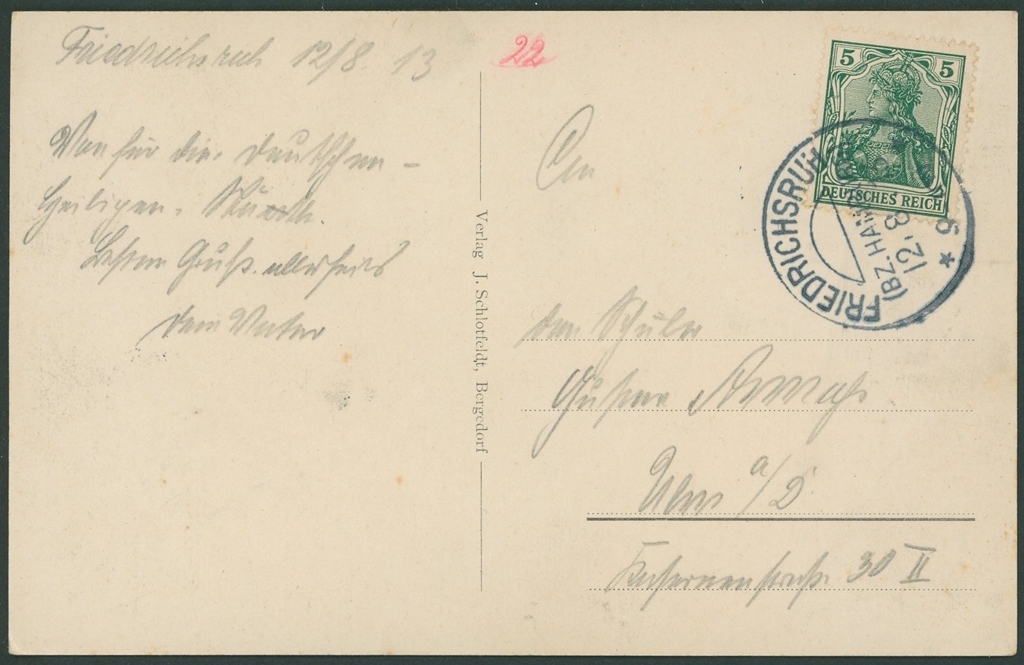 Friedrichsruh 12/8. 13
Von für die deutschen
heiligen
Besten Gruß. allerseits
Dein Vater
22
Verlag J. Schlotfeldt, Bergedorf
An
den Schüler
Gustav
Ulm a/D
Kasernenstraße 30 II
5 5
DEUTSCHES REICH
FRIEDRICHSRUH
(BZ. HAMBURG)
12. 8.